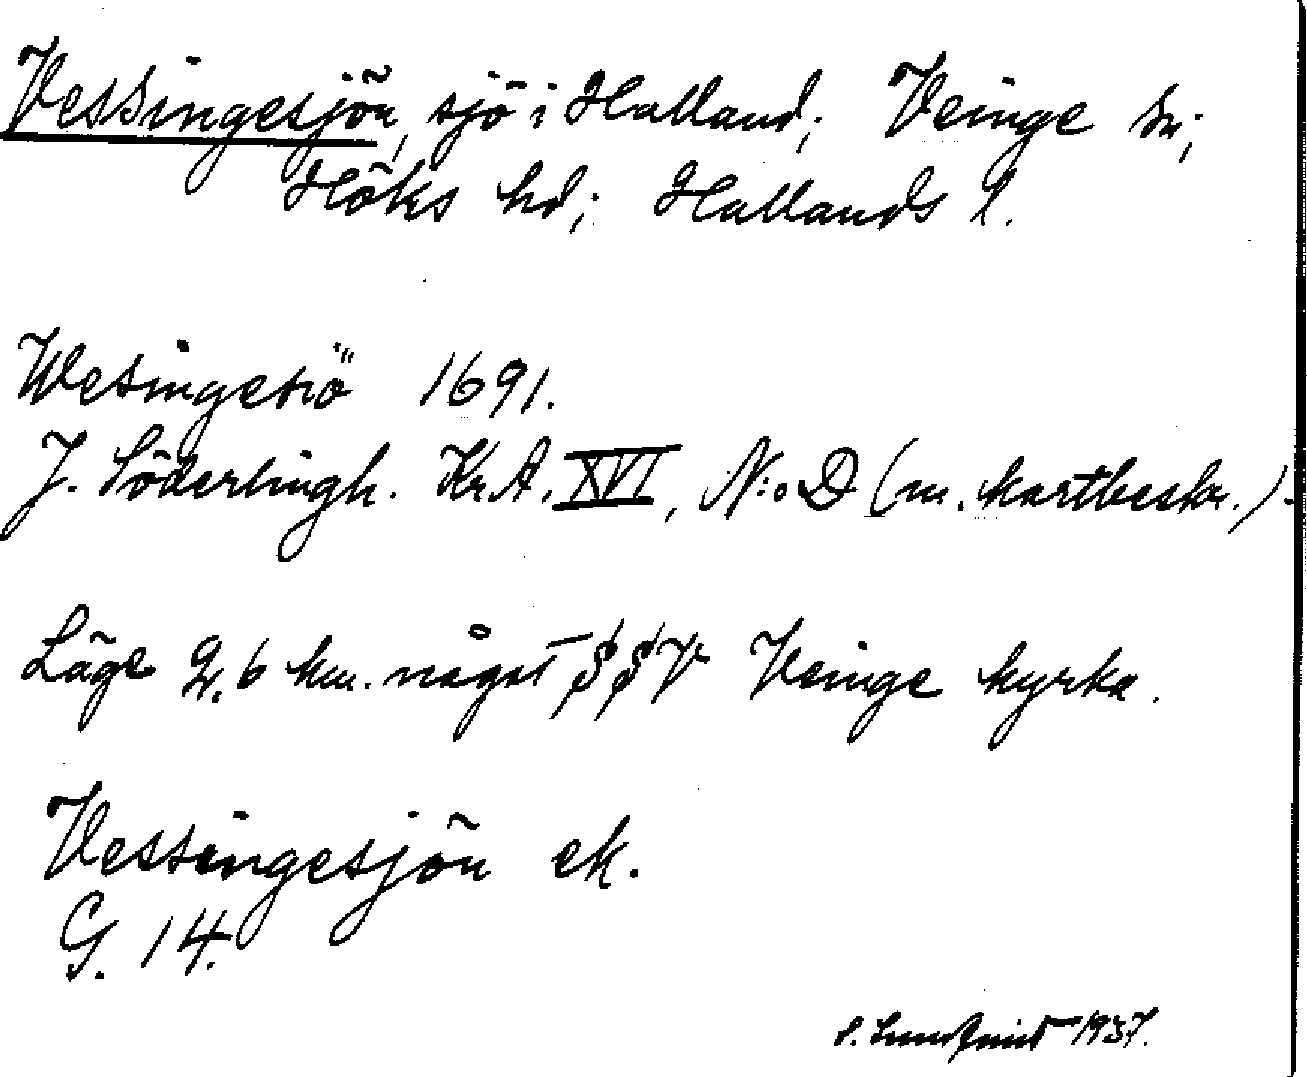 Vessingesjön, sjö i Halland; Veinge sn;
Höks hd; Hallands l.
Wesingesiö 1691.
J. Söderlingh. Kr.A. XVI, N:o D (m. kartbeskr.)
Läge 2,6 km. något SSV Veinge kyrka.
Vessingesjön ek.
G. 14.
S. Lundqvist 1937.